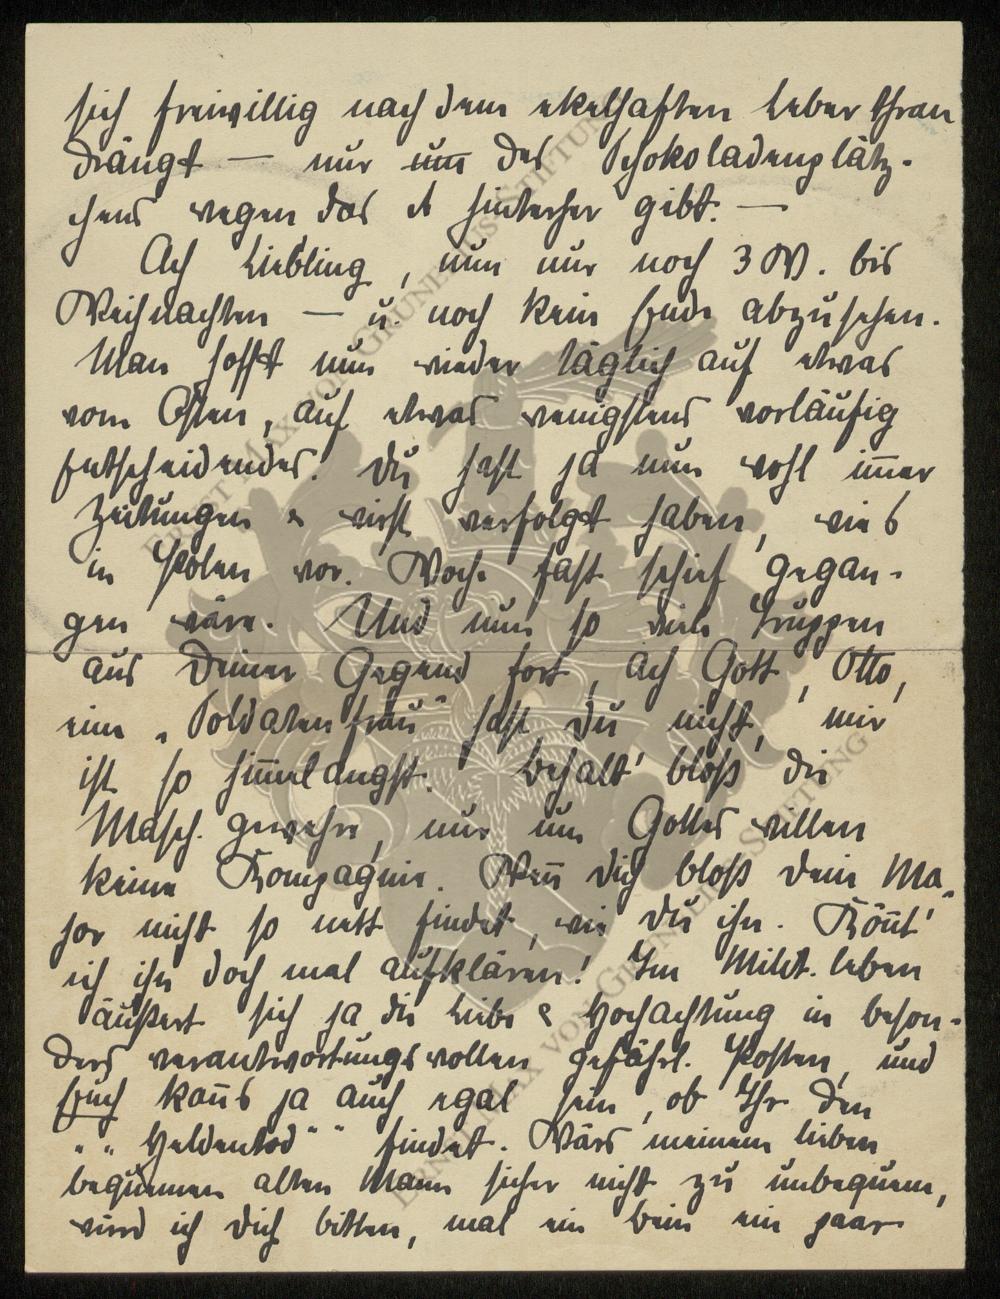 sich freiwillig nach dem ekelhaften Leberthran
drängt — nur um des Schokoladenplätz-
chens wegen das es hinterher gibt. —
Ach Liebling, nun nur noch 3 W. bis
Weihnachten — u. noch kein Ende abzusehen.
Man hofft nun wieder täglich auf etwas
vom Osten, auf etwas wenigstens vorläufig
Entscheidendes. Du hast ja nun wohl im̄er
Zeitungen & wirst verfolgt haben, wie's
in Polen vor. Woche fast schief gegan-
gen wäre. Und nun so viele Truppen
aus Deiner Gegend fort, ach Gott, Otto,
eine „Soldatenfrau" hast Du nicht, mir
ist so him̄elangst. Behalt' bloß die
Masch. gewehre, nur um Gottes willen
keine Kompagnie. Wen̄ Dich bloß Dein Ma-
jor nicht so nett findet, wie Du ihn. Kön̄t'
ich ihn doch mal aufklären! Im Milit. leben
äußert sich ja die Liebe & Hochachtung in beson-
ders verantwortungsvollen gefährl. Posten, und
Euch kan̄s ja auch egal sein, ob Ihr den
„ „Heldentod" " findet. Wärs meinem lieben
bequemen alten Mann sicher nicht zu unbequem,
würd ich Dich bitten, mal ein Bein ein paar
ERNST MAX VON GRUNELIUS-STIFTUNG
ERNST MAX VON GRUNELIUS-STIFTUNG